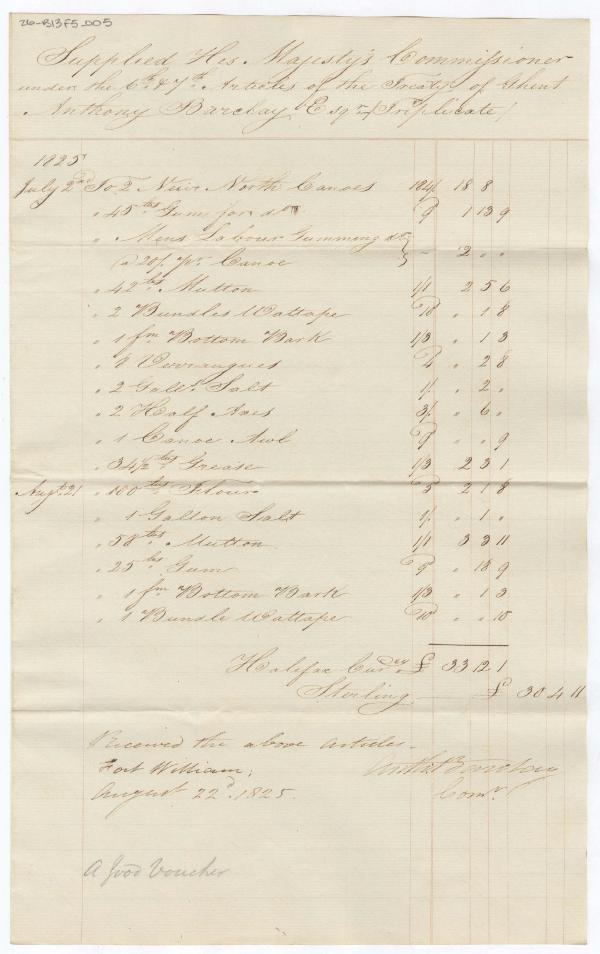 26-B13F5_005
Supplied His Majesty's Commissioner
under the 6th & 7th Articles of the Treaty of Ghent
Anthony Barclay, Esqr. (Triplicate)
1825
July 2nd To 2 New North Canoes 184/ 18 8
" 45 lbs Gum for do 9 1 13 9
" Mens Labour Gumming do
@ 20/ pr. Canoe - 2 " "
" 42 lbs Mutton 1/1 2 5 6
" 2 Bundles Wattape 10 " 1 8
" 1 fm Bottom Bark 1/3 " 1 3
" 8 Varrangues 4 " 2 8
" 2 Galls. Salt 1/ " 2 "
" 2 Half Axes 3/ " 6 "
" 1 Canoe Awl 9 " " 9
" 34 1/2 lbs Grease 1/3 2 3 1
Augt. 21 " 100 lbs Flour 5 2 1 8
" 1 Gallon Salt 1/ " 1 "
" 58 lbs Mutton 1/1 3 3 11
" 25 lbs Gum 9 " 18 9
" 1 fm Bottom Bark 1/3 " 1 3
" 1 Bundle Wattape 10 " " 10
Halifax Curcy. £ 33 12 1
Sterling £ 30 4 11
Received the above Articles -
Fort William, Antht Barclay
August 22d. 1825. Comr.
A good Voucher